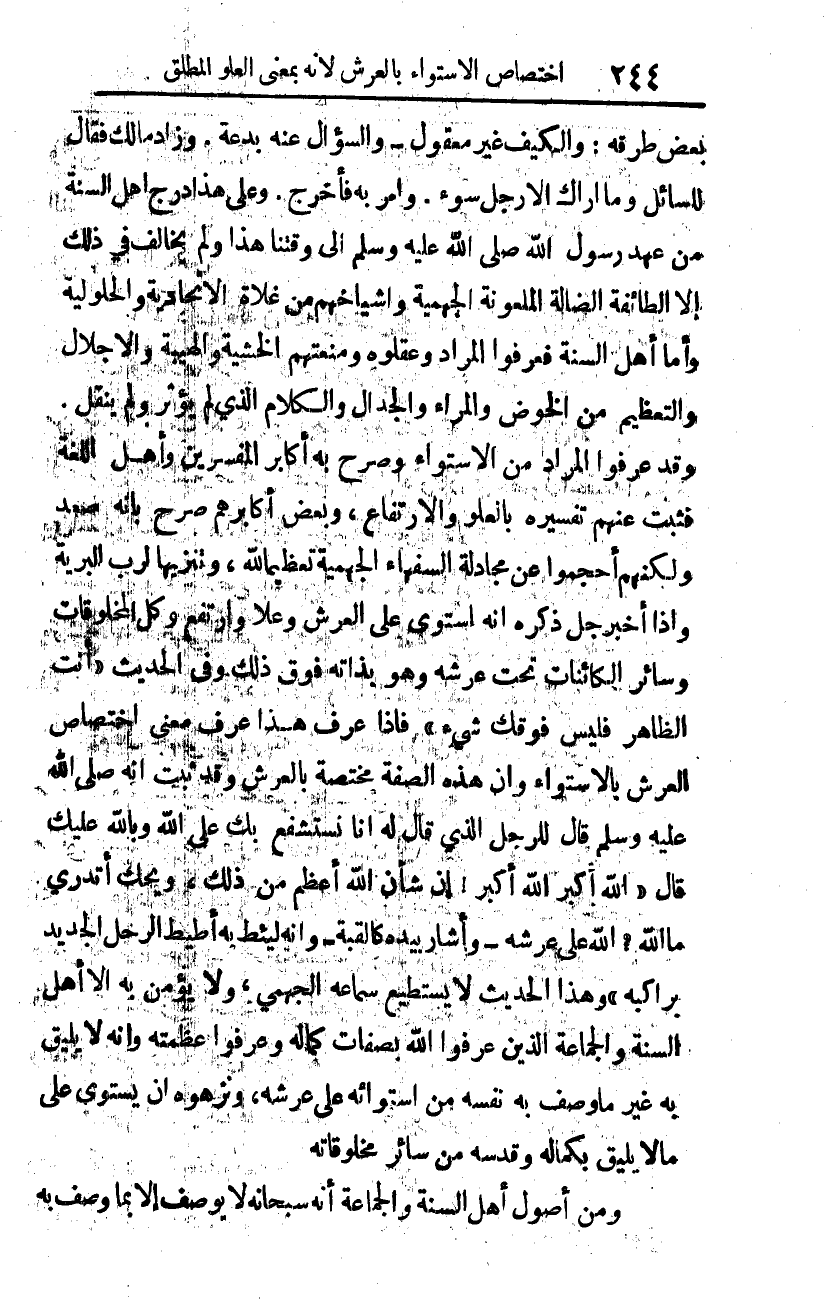 ٢٤٤ اختصاص الاستواء بالعرش لأنه بمعنى العلو المطلق
بعض طرقه : والكيف غير معقول ــ والسؤال عنه بدعة . وزاد مالك فقال
للسائل وما اراك الا رجل سوء . وامر به فأخرج . وعلى هذا درج اهل السنة
من عهد رسول الله صلى الله عليه وسلم الى وقتنا هذا ولم يخالف في ذلك
إلا الطائفة الضالة الملعونة الجهمية واشياخهم من غلاة الاتحادية والحلولية
وأما أهل السنة فعرفوا المراد وعقلوه ومنعتهم الخشية والهيبة والاجلال
والتعظيم من الخوض والمراء والجدال والكلام الذي لم يؤثر ولم ينقل .
وقد عرفوا المراد من الاستواء وصرح به أكابر المفسرين وأهل اللغة
فثبت عنهم تفسيره بالعلو والارتفاع ، وبعض أكابرهم صرح بانه صعد
ولكنهم أحجموا عن مجادلة السفهاء الجهمية تعظيما لله ، وتنزيها لرب البرية
واذا أخبر جل ذكره انه استوى على العرش وعلا وارتفع وكل المخلوقات
وسائر الكائنات تحت عرشه وهو بذاته فوق ذلك وفي الحديث «أنت
الظاهر فليس فوقك شيء» فاذا عرف هذا عرف معنى اختصاص
العرش بالاستواء وان هذه الصفة مختصة بالعرش وقد ثبت انه صلى الله
عليه وسلم قال للرجل الذي قال له انا نستشفع بك على الله وبالله عليك
قال « الله أكبر الله أكبر ! إن شأن الله أعظم من ذلك ، ويحك أتدري
ما الله ? الله على عرشه ــ وأشار بيده كالقبة ــ وانه ليئط به أطيط الرحل الجديد
براكبه » وهذا الحديث لا يستطيع سماعه الجهمي ، ولا يؤمن به الا أهل
السنة والجماعة الذين عرفوا الله بصفات كماله وعرفوا عظمته وانه لا يليق
به غير ما وصف به نفسه من استوائه على عرشه، ونزهوه ان يستوي على
مالا يليق بكماله وقدسه من سائر مخلوقاته
ومن أصول أهل السنة والجماعة أنه سبحانه لا يوصف إلا بما وصف به